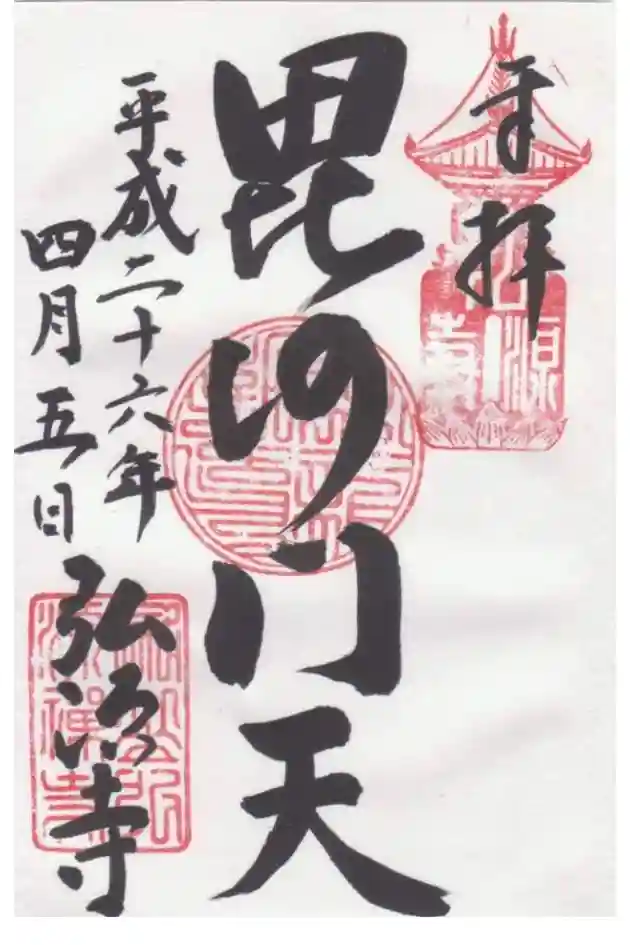 奉拝
毘沙門天
平成二十六年
四月五日
弘源寺